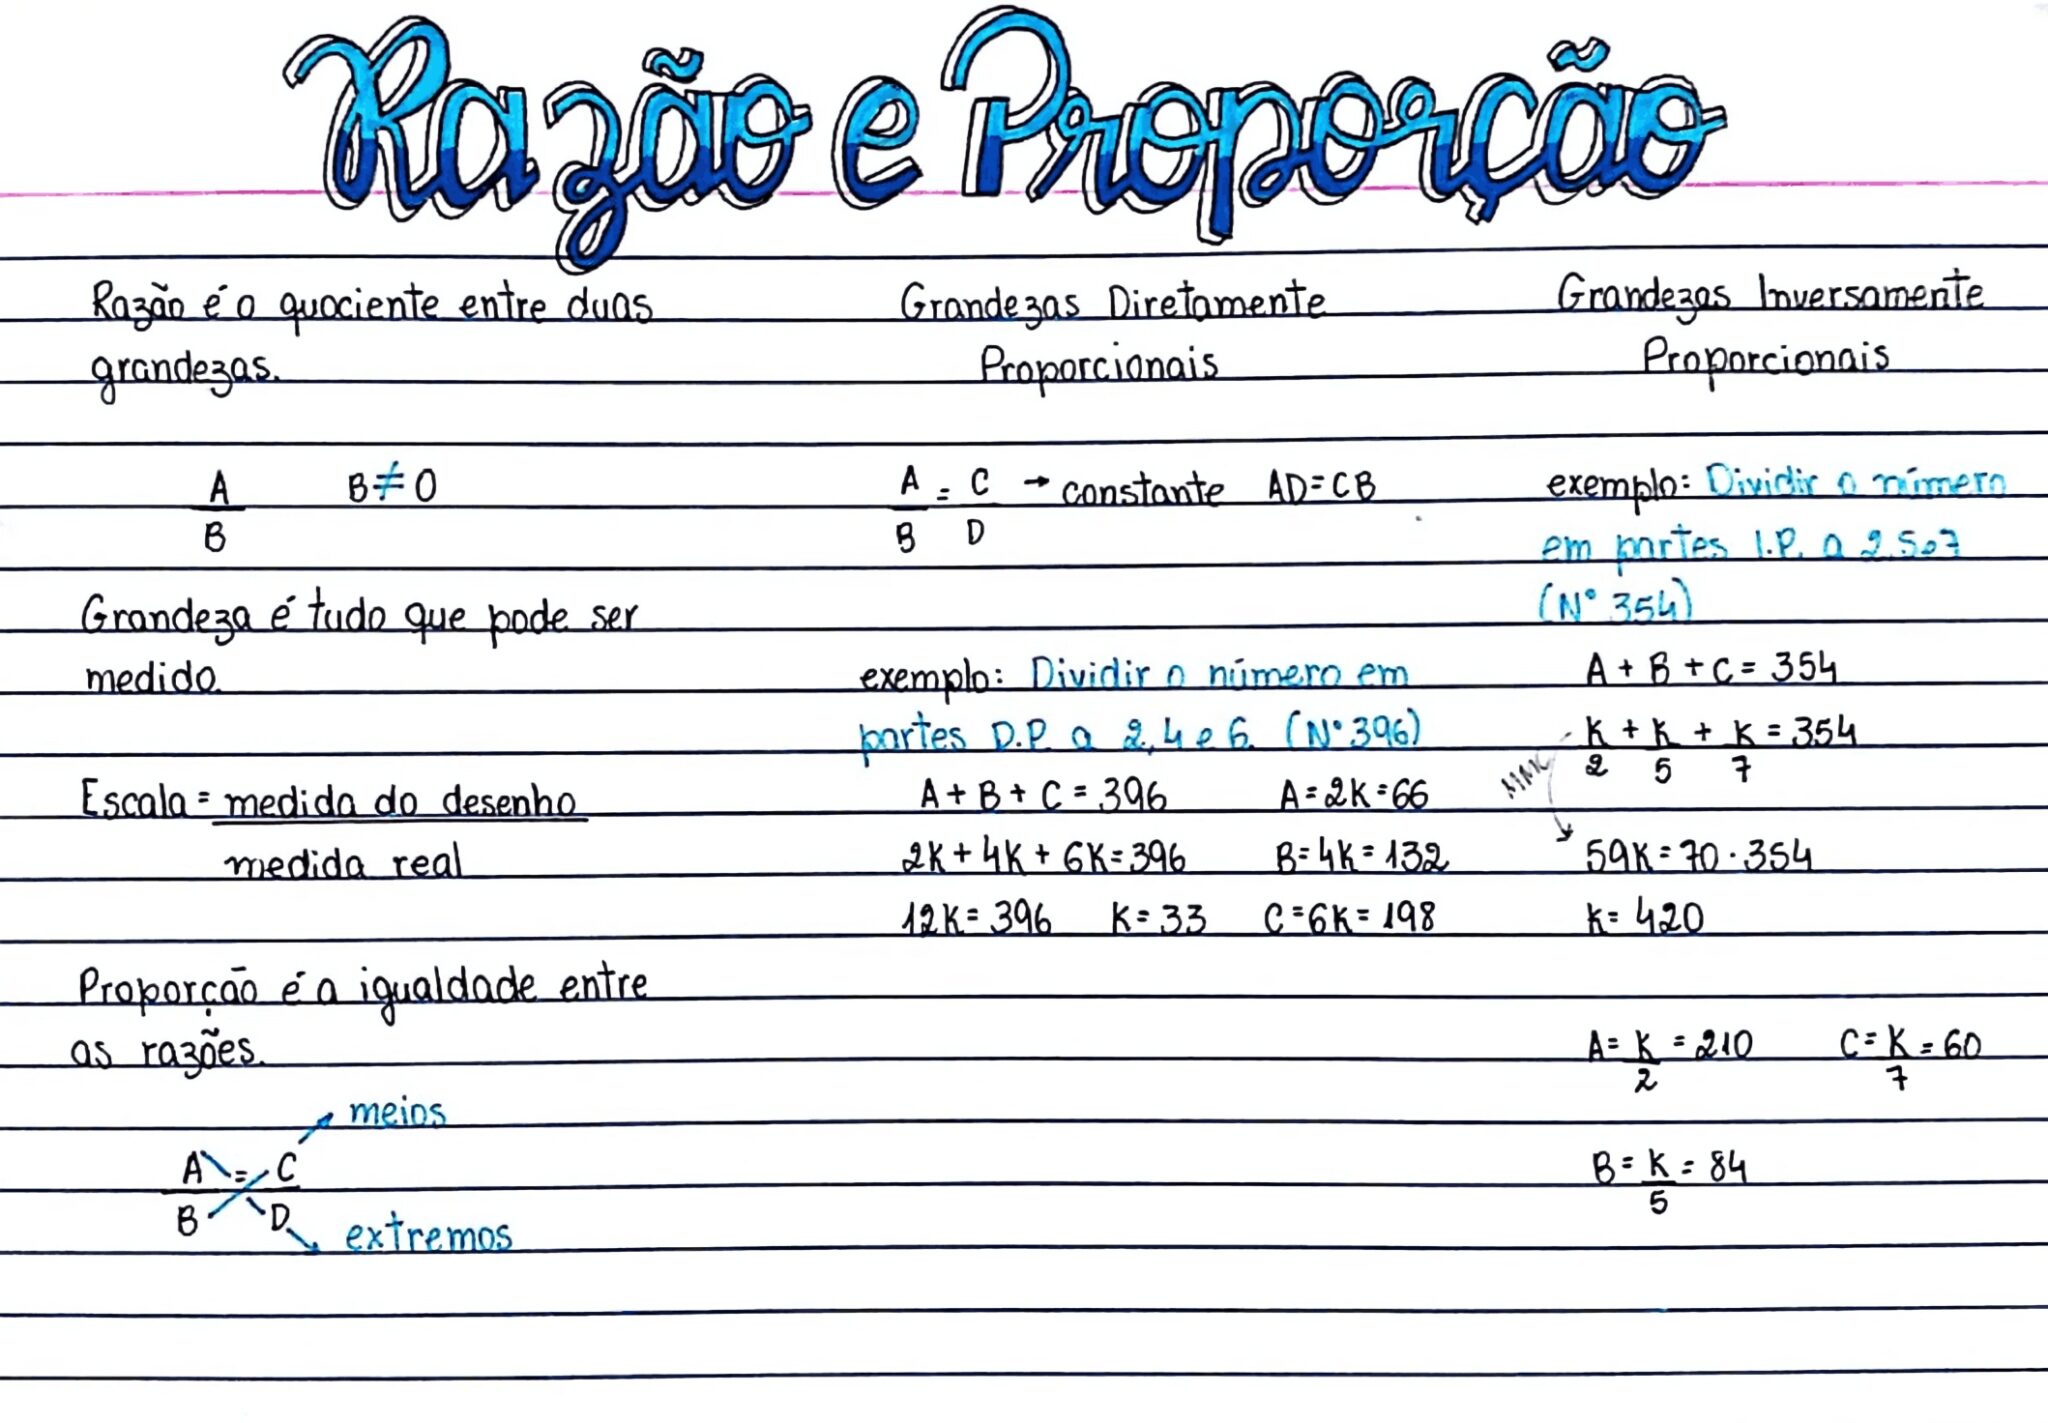 Razão e Proporção
Razão é o quociente entre duas
grandezas.
A B≠0
B
Grandeza é tudo que pode ser
medido.
Escala = medida do desenho
medida real
Proporção é a igualdade entre
as razões.
meios
A = C
B D
extremos
Grandezas Diretamente
Proporcionais
A = C → constante AD=CB
B D
exemplo: Dividir o número em
partes D.P. a 2, 4 e 6. (N° 396)
A + B + C = 396 A=2K=66
2K+4K+6K=396 B=4K=132
12K=396 K=33 C=6K=198
Grandezas Inversamente
Proporcionais
exemplo: Dividir o número
em partes I.P. a 2,5 e 7
(N° 354)
A + B + C = 354
K + K + K = 354
2 5 7
59K=70·354
K=420
A= K = 210 C= K = 60
2 7
B= K = 84
5